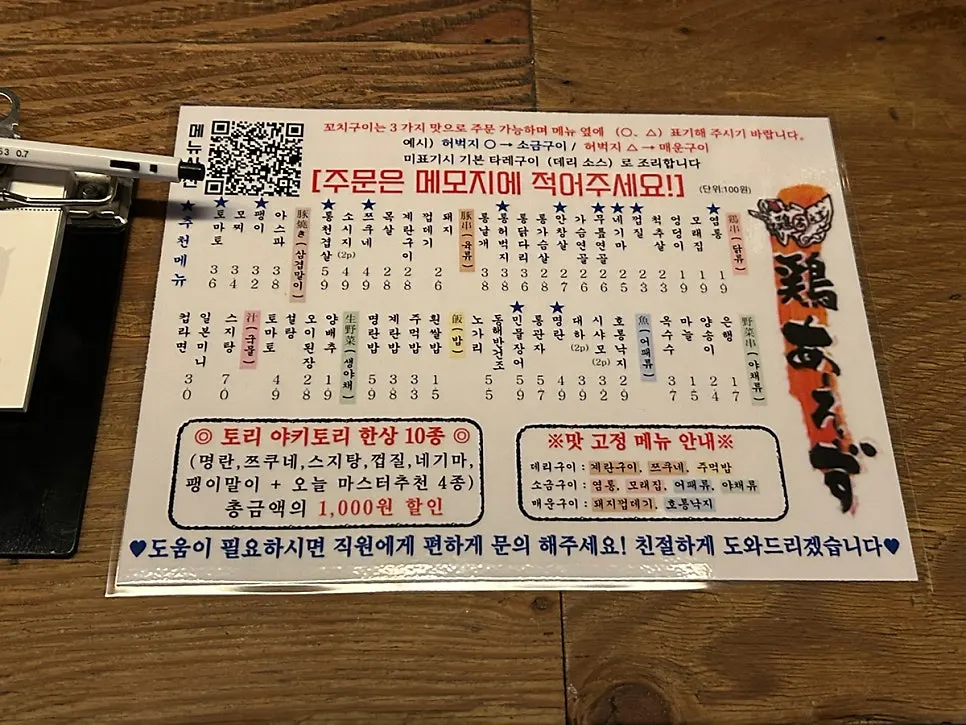 메뉴
꼬치구이는 3 가지 맛으로 주문 가능하며 메뉴 옆에 (○, △) 표기해 주시기 바랍니다.
예시) 허벅지 ○ → 소금구이 / 허벅지 △ → 매운구이
미표기시 기본 타레구이 (데리 소스) 로 조리합니다
[주문은 메모지에 적어주세요!]
(단위:100원)
鶏串(닭류)
★염통 19
모래집 19
엉덩이 19
척추살 23
★껍질 23
★네기마 25
★무릎연골 26
가슴연골 28
★안창살 27
통가슴살 28
통닭다리 38
★통허벅지 38
통날개 38
豚串(육류)
돼지
껍데기 23
계란구이 28
목살 38
★쯔쿠네 49
소시지(2p) 49
통천겹살 59
豚焼き(삼겹말이)
아스파 38
★팽이 32
모찌 34
★토마토 36
★추천메뉴
野菜串(야채류)
은행 17
양송이 24
마늘 15
옥수수 37
魚(어패류)
호롱낙지 29
시샤모(2p) 32
대하(2p) 39
★명란 49
통관자 57
★민물장어 59
동해반건조 55
노가리
飯(밥)
흰쌀밥 15
주먹밥 33
계란밥 38
명란밥 59
生野菜(생야채)
양배추 19
오이된장 28
설탕
토마토 49
汁(국물)
스지탕 70
일본미니
컵라면 30
鶏あえず
◎ 토리 야키토리 한상 10종 ◎
(명란,쯔쿠네,스지탕,껍질,네기마,
팽이말이 + 오늘 마스터추천 4종)
총금액의 1,000원 할인
※맛 고정 메뉴 안내※
데리구이 : 계란구이, 쯔쿠네, 주먹밥
소금구이 : 염통, 모래집, 어패류, 야채류
매운구이 : 돼지껍데기, 호롱낙지
♥도움이 필요하시면 직원에게 편하게 문의 해주세요! 친절하게 도와드리겠습니다♥
53 0.7